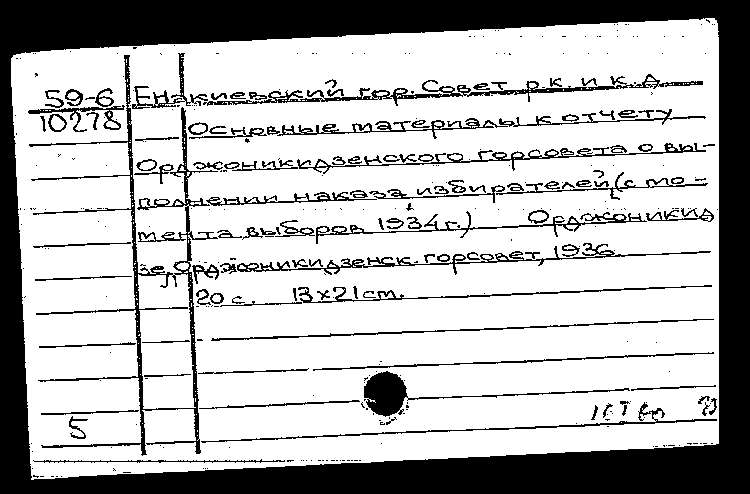 59-6 Енакиевский гор. Совет р.к. и к.д.
10278 Основные материалы к отчету
Орджоникидзенского горсовета о вы-
полнении наказа избирателей (с мо-
мента выборов 1934 г.) Орджоникид
зе, Орджоникидзенск. горсовет, 1936.
20 с. 13x21 cm.
5